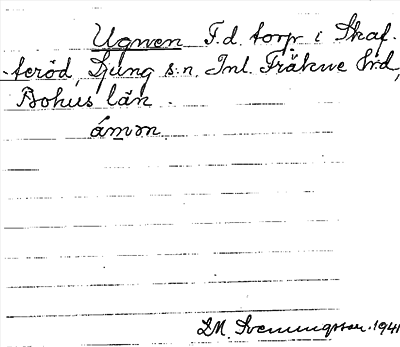 Ugnen F.d. torp i Skaf-
teröd, Ljung s:n, Inl. Fräkne hrd,
Bohus län.
ånɯn.
LM. Svenungsson. 1941